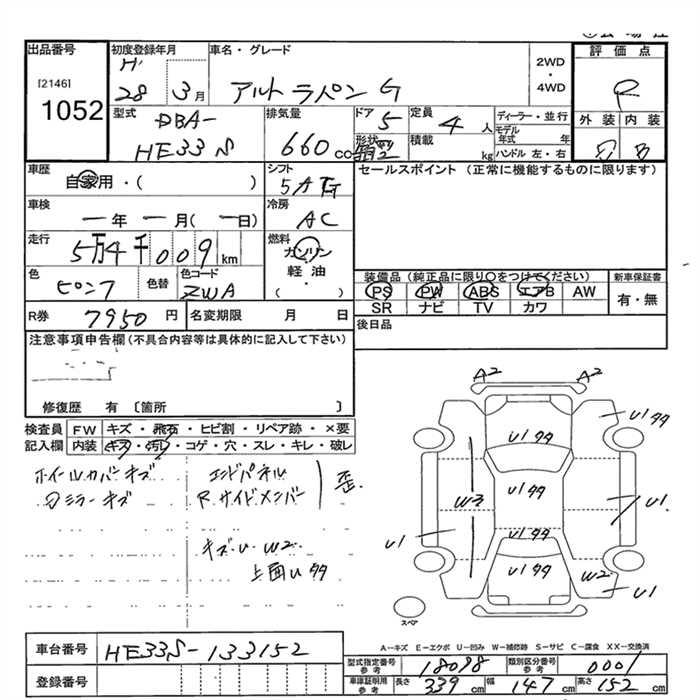 出品番号
[2146]
1052
初度登録年月
H
28 3月
車名・グレード
アルト ラパン G
2WD
・
4WD
評価点
R
外装 内装
B
型式
DBA-
HE33S
排気量
660cc
ドア 5
形状
定員 4人
積載 kg
ディーラー・並行
モデル年式 年
ハンドル 左・右
車歴
自家用・( )
シフト
5A
車検
一年一月(一日)
冷房
AC
走行
5万4千009km
燃料
ガソリン
軽油・
( )
色
ピンク
色替
色コード
ZWA
R券 7950円
名変期限 月 日
セールスポイント (正常に機能するものに限ります)
装備品(純正品に限り○をつけてください)
PS PW ABS エアB AW
SR ナビ TV カワ
新車保証書
有・無
後日品
注意事項申告欄(不具合内容等は具体的に記入して下さい)
修復歴 有〔箇所
検査員記入欄
FW キズ・飛石・ヒビ割・リペア跡・×要
内装 キズ・汚れ・コゲ・穴・スレ・キレ・破レ
ホイールカバーキズ
ミラーキズ
エンドパネル
Rサイドメンバー
歪
キズ・U W2
上面U タタ
A2 A2
U1タタ
U1タタ
U1タタ
W3
U1
U1タタ
U1
U1タタ
W2
U1
スペア
A-キズ E-エクボ U-凹み W-補修跡 S-サビ C-腐食 XX-交換済
車台番号 HE33S-133152
登録番号
型式指定番号 参考 18098
類別区分番号 参考 0001
車庫証明用 参考 長さ 339cm 幅 147cm 高さ 152cm